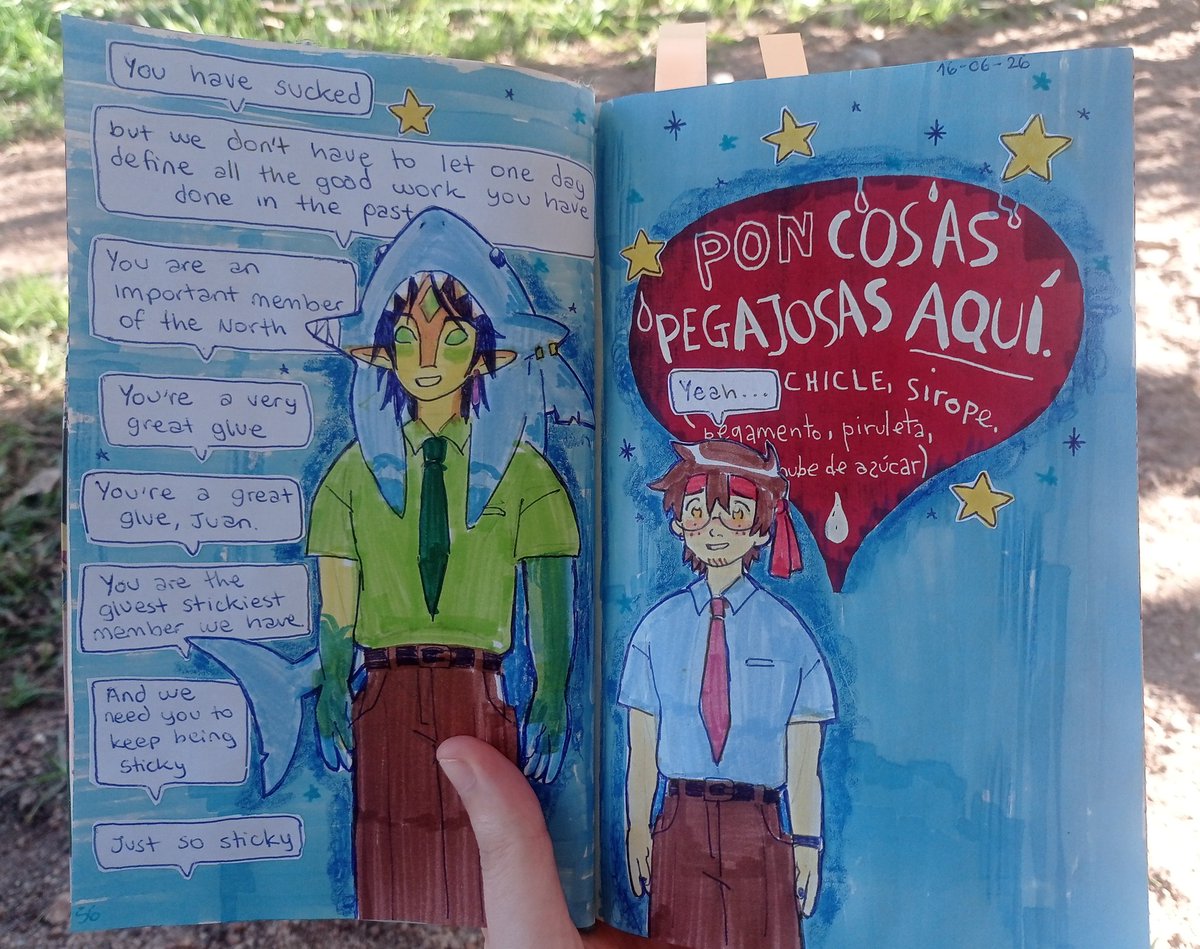 You have sucked
but we don't have to let one day
define all the good work you have
done in the past
You are an
important member
of the North
You're a very
great glue
You're a great
glue, Juan.
You are the
gluest stickiest
member we have
And we
need you to
keep being
sticky
Just so sticky
56
16-06-26
PON COSAS
PEGAJOSAS AQUÍ.
CHICLE, SIROPE.
Yeah...
pegamento, piruleta,
nube de azúcar)